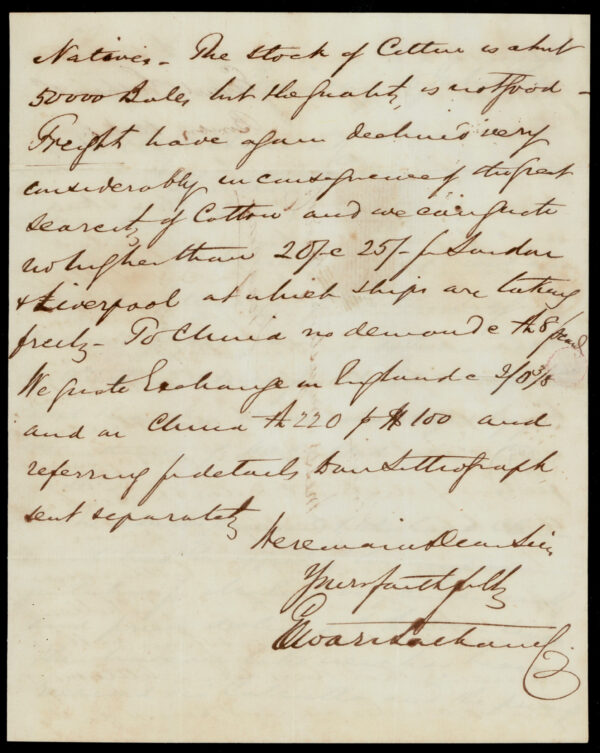 Natives - The stock of Cotton is about
50000 Bales but the quality is not good -
Freights have again declined very
considerably in consequence of the great
scarcity of Cotton and we can quote
no higher than 20/- @ 25/- for London
& Liverpool at which ships are taking
freely - To China no demand @ 8/
We quote Exchange on England @ 2/0 3/8
and on China 220 p $100 and
referring for details to our Lithograph
sent separately
We remain Dear Sirs
Yours faithfully
Ewart Latham & Co